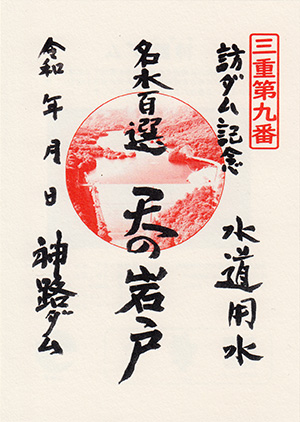 三重第九番
訪ダム記念
水道用水
名水百選
天の岩戸
令和 年 月 日
神路ダム